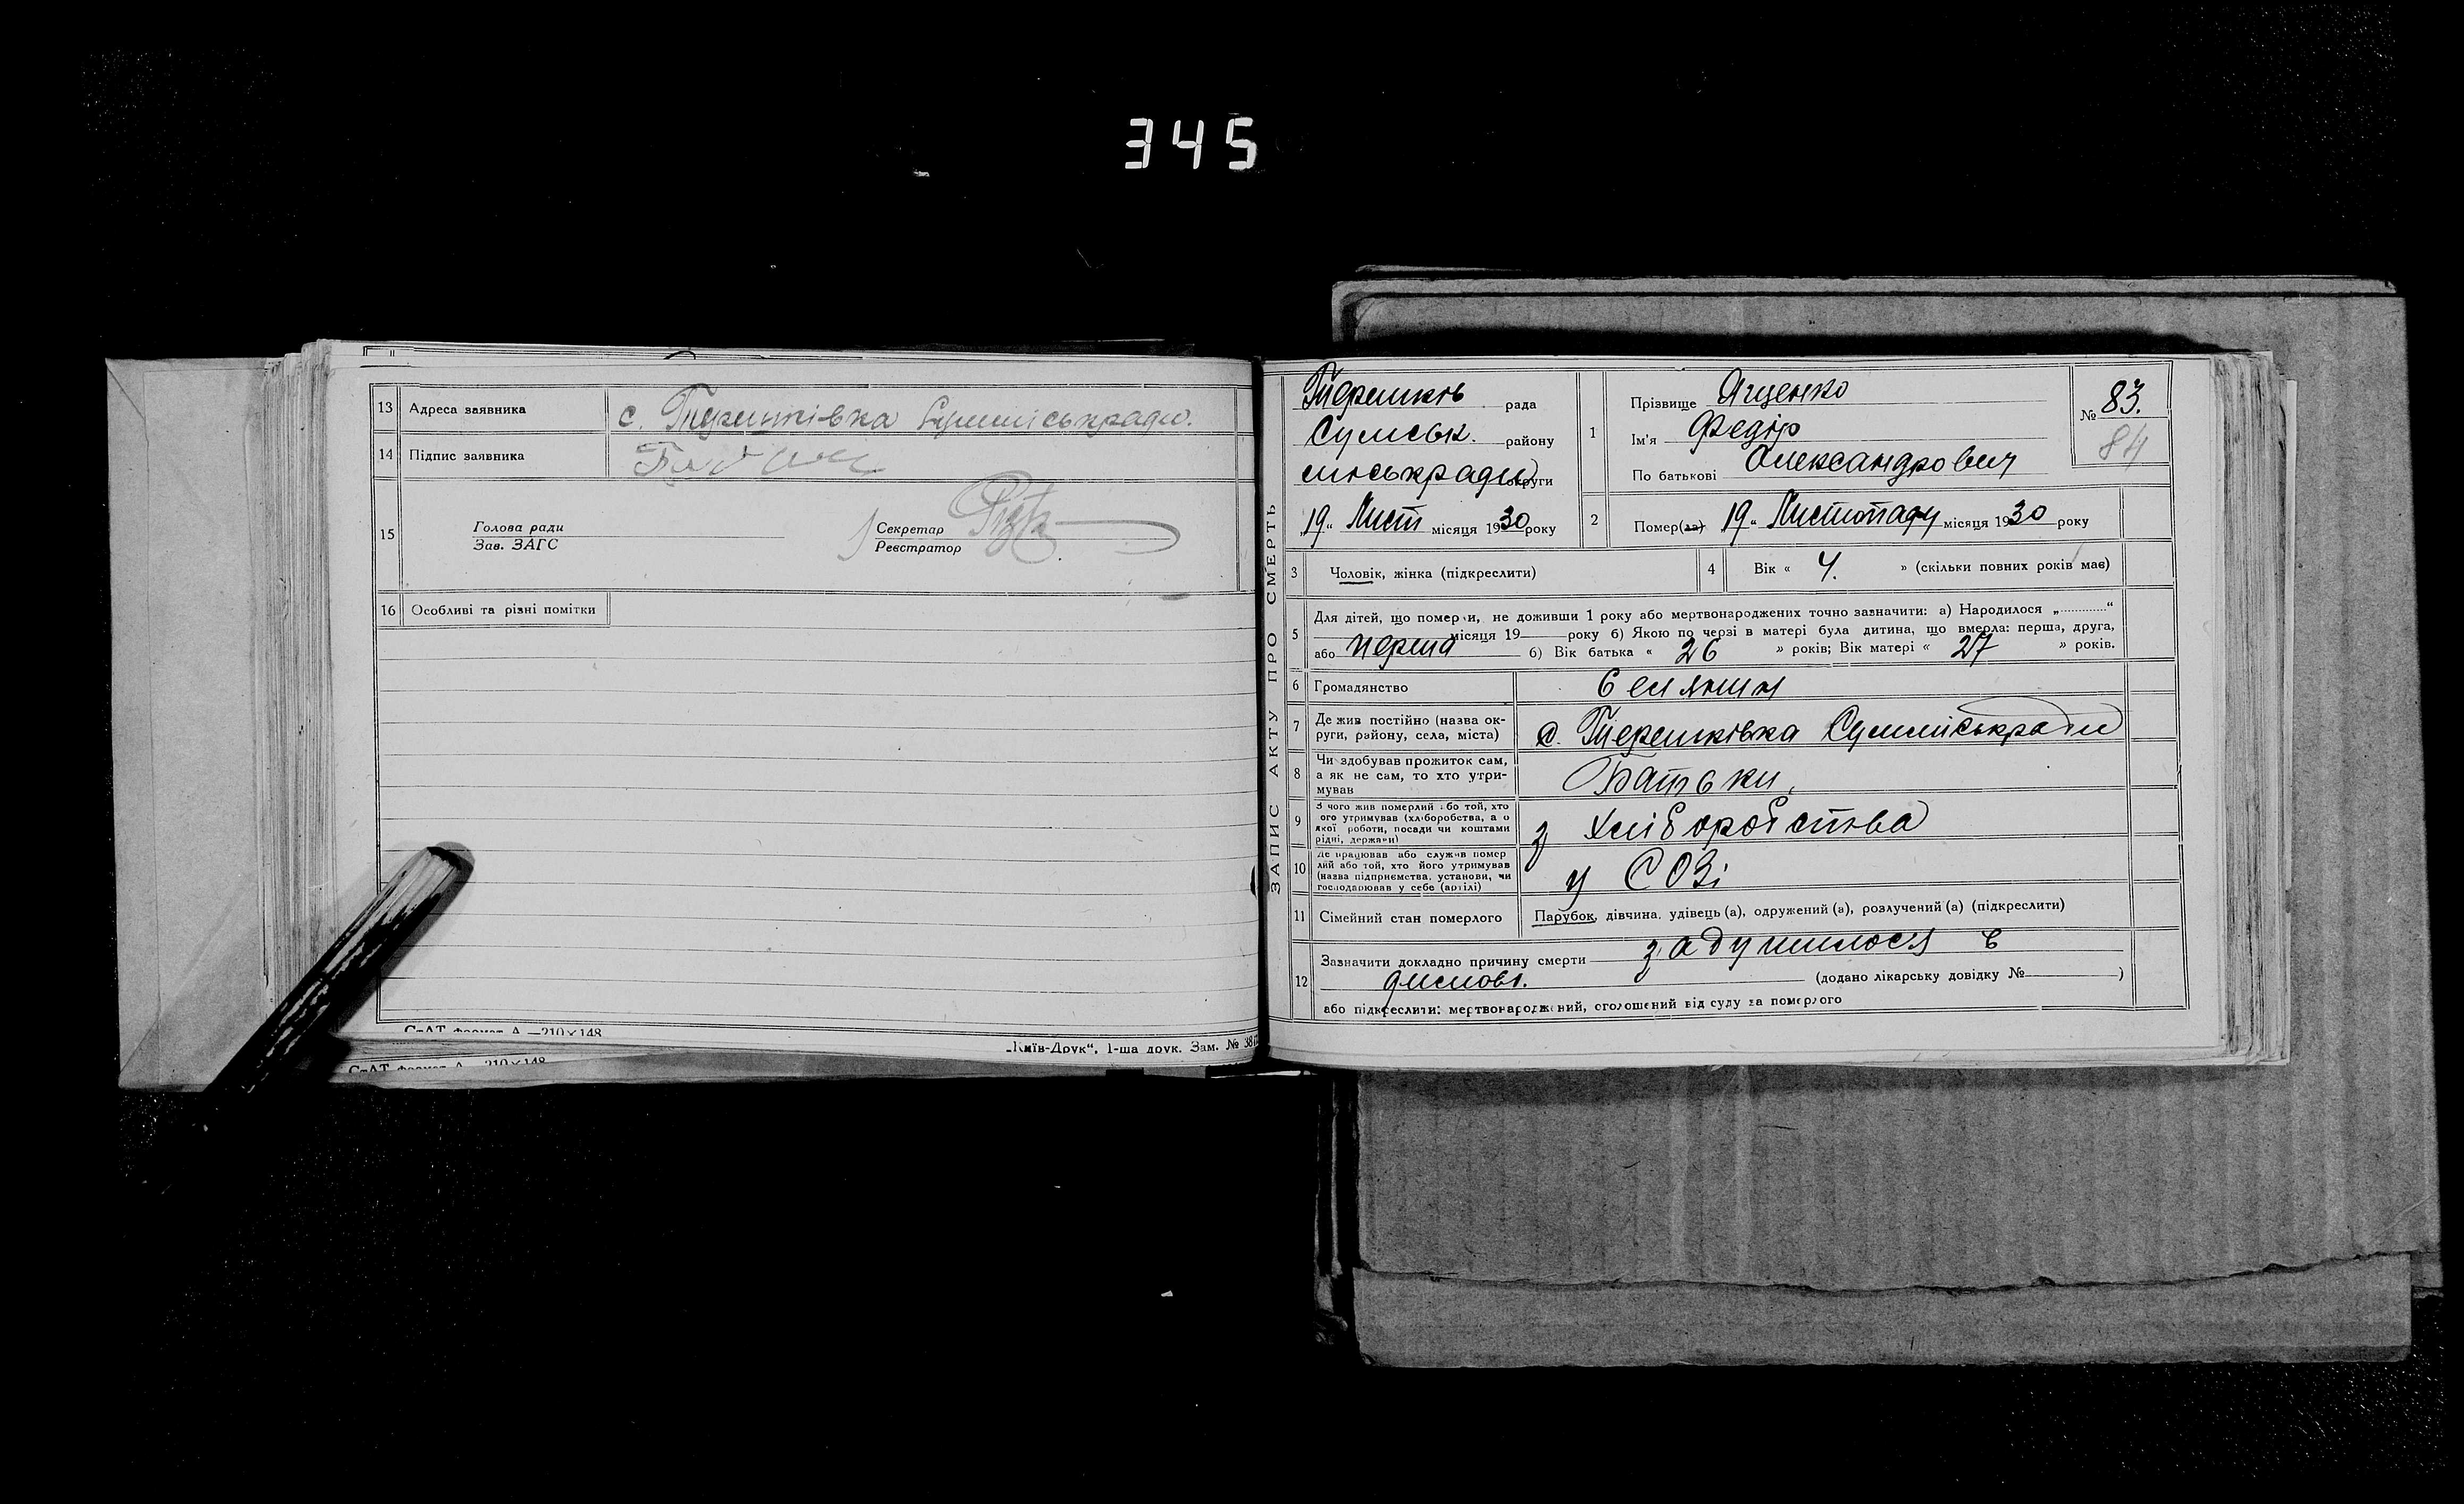 345
13 Адреса заявника с. Терешківка Суммiськради.
14 Підпис заявника
15 Голова ради
Зав. ЗАГС
Секретар
Реєстратор
16 Особливі та різні помітки
СтАТ формат А —210×148
„Київ-Друк“, 1-ша друк. Зам. № 38
СтАТ формат А —210×148
ЗАПИС АКТУ ПРО СМЕРТЬ
Терешків рада
Сумськ. району
міськради округи
„19„ Лист місяця 1930 року
1 Прізвище Ященко
Ім'я Федір
По батькові Олександрович
№ 83.
84
2 Помер(ла) 19„ Листопаду місяця 1930 року
3 Чоловік, жінка (підкреслити)
4 Вік « 4. » (скільки повних років має)
5 Для дітей, що померли, не доживши 1 року або мертвонароджених точно зазначити: а) Народилося „............“
місяця 19 року б) Якою по черзі в матері була дитина, що вмерла: перша, друга,
або перша б) Вік батька « 26 » років; Вік матері « 27 » років.
6 Громадянство Селянин
7 Де жив постійно (назва ок-
руги, району, села, міста) с. Терешківка Суммiськради
8 Чи здобував прожиток сам,
а як не сам, то хто утри-
мував Батьки,
9 З чого жив померлий або той, хто
ого утримував (хліборобства, а о
якої роботи, посади чи коштами
рідні, держави) з хліборобства
10 Де працював або служив помер
лий або той, хто його утримував
(назва підприємства, установи, чи
господарював у себе (артілі) у СОЗі
11 Сімейний стан померлого Парубок, дівчина, удівець (а), одружений (а), розлучений (а) (підкреслити)
12 Зазначити докладно причину смерти задушилося в
димові. (додано лікарську довідку № )
або підкреслити: мертвонароджений, оголошений від суду за померлого